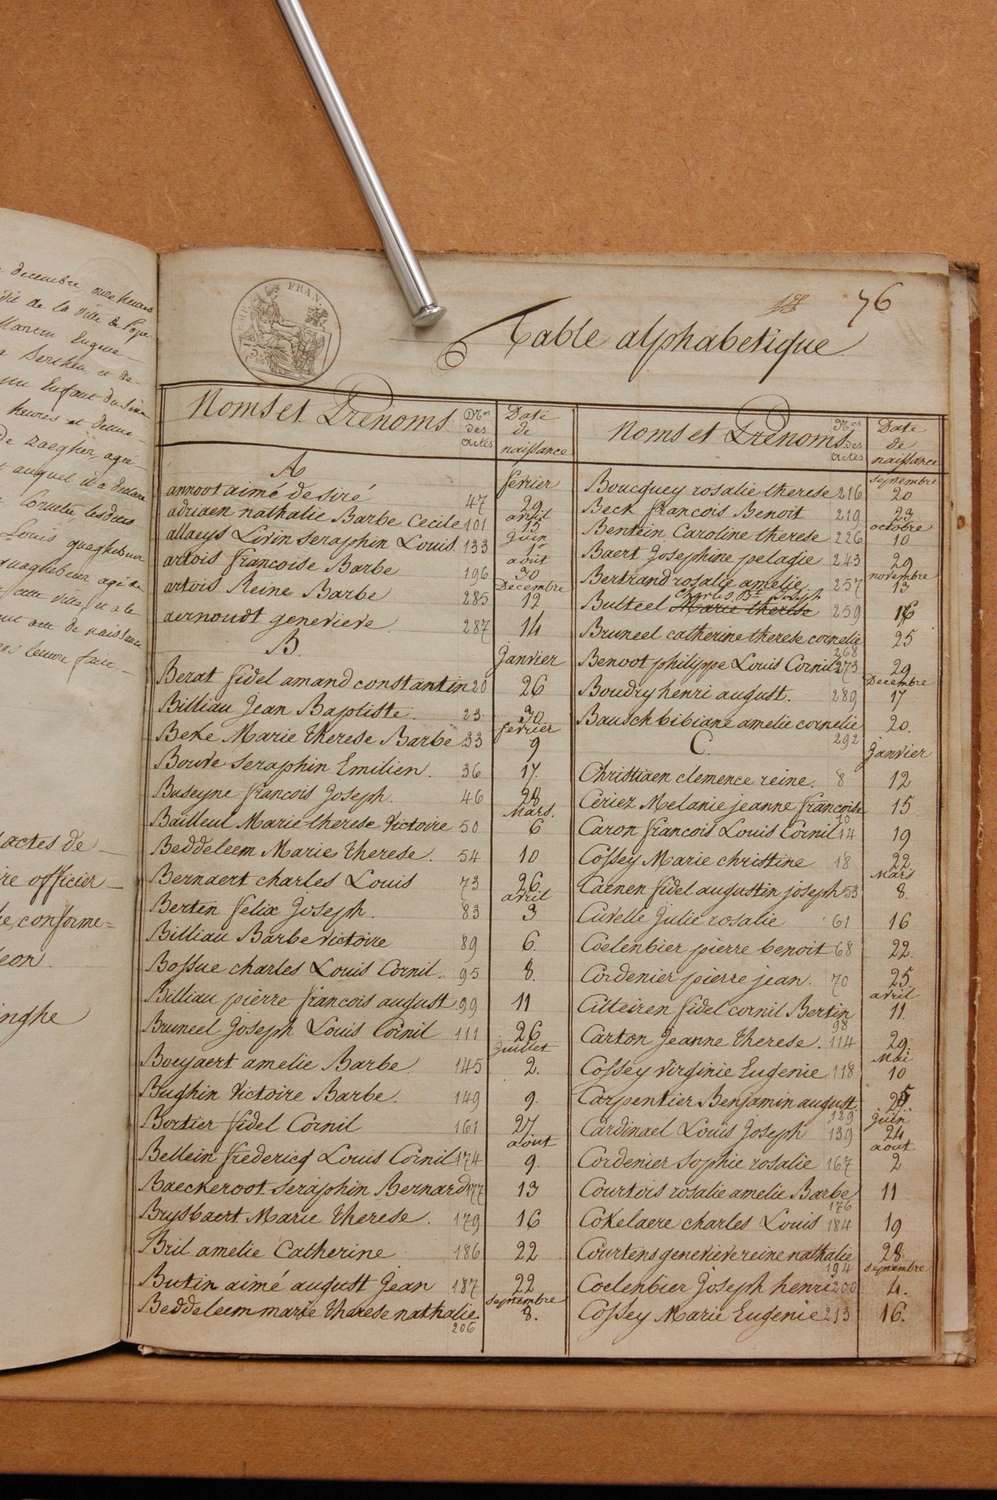 decembre, onze heures
de la ville de
Martin Eugene
Enfant du
heures
de Zaegher, age
auquel il a declare
Louis quaghebeur
quaghebeur age
cette ville, et a le
acte de naissance
leur faire
actes de
officier
conforme=
eon.
inghe
76
Table alphabetique
FRAN
Noms et Prenoms Nos des actes Date de naissance Noms et Prenoms Nos des actes Date de naissance
A
février
annoot aimé desiré 47 29
avril
adriaen nathalie Barbe Cecile 101 15
Juin
allaeys Livin seraphin Louis 133 1r
août
artois francoise Barbe 196 30
Decembre
artois Reine Barbe 285 12
aernoudt genevieve 287 14
B.
Janvier
Berat fidel amand constantin 20 26
Billiau Jean Baptiste. 23 30
fevrier
Beke Marie therese Barbe 33 9
Bouve seraphin Emilien. 36 17.
Buseyne francois Joseph. 46 28
Mars.
Bailleul Marie-therese Victoire 50 6
Beddeleem Marie therese. 54 10
Bernaert charles Louis 73 26
avril
Bertin felix Joseph. 83 3
Billiau Barbe victoire 89 6.
Bossue charles Louis Cornil. 95 8.
Billiau pierre francois august 99 11
Bruneel Joseph Louis Cornil 111 26
Juillet
Bouyaert amelie Barbe 145 2.
Bughin Victoire Barbe. 149 9.
Bortier fidel Cornil 161 27
août
Bellein fredericq Louis Cornil 174 9.
Baeckeroot seraphin Bernard 177 13
Brysbaert Marie therese. 179 16
Bril amelie Catherine 186 22
Butin aimé august Jean 187 22
septembre
Beddeleem marie therese nathalie. 206 8.
septembre
Boucquey rosalie therese 216 20
Beck francois Benoit 219 23
octobre
Bentein Caroline therese 226 10
Baert Josephine pelagie 243 29
novembre
Bertrand rosalie amelie 257 13
charles Bte Joseph
Bulteel Marie therese 259 16
Bruneel catherine therese cornelie 268 25
Benoot philippe Louis Cornil 273 29
Decembre
Boudry henri august. 289 17
Bausch bibiane amelie cornelie 292 20.
C.
Janvier
Christiaen clemence reine. 8 12
Ceriez Melanie jeanne francoise 10 15
Caron francois Louis Cornil 14 19
Cossey Marie christine 18 22
Mars
Caenen fidel augustin joseph 53 8.
Cuvelle Julie rosalie 61 16
Coelenbier pierre benoit 68 22.
Cordenier pierre jean. 70 25
avril
Citeiren fidel cornil Bertin 98 11.
Carton Jeanne therese. 114 29.
Mai
Cossey Virginie Eugenie 118 10
Carpentier Benjamin august. 139 25
Juin
Cardinael Louis Joseph 139 24
aout
Cordenier sophie rosalie 167 2
Courtois rosalie amelie Barbe 176 11
Cokelaere charles Louis 184 19
Courtens genevieve reine nathalie 194 28
septembre
Coelenbier Joseph henri 200 4.
Cossey Marie Eugenie 213 16.